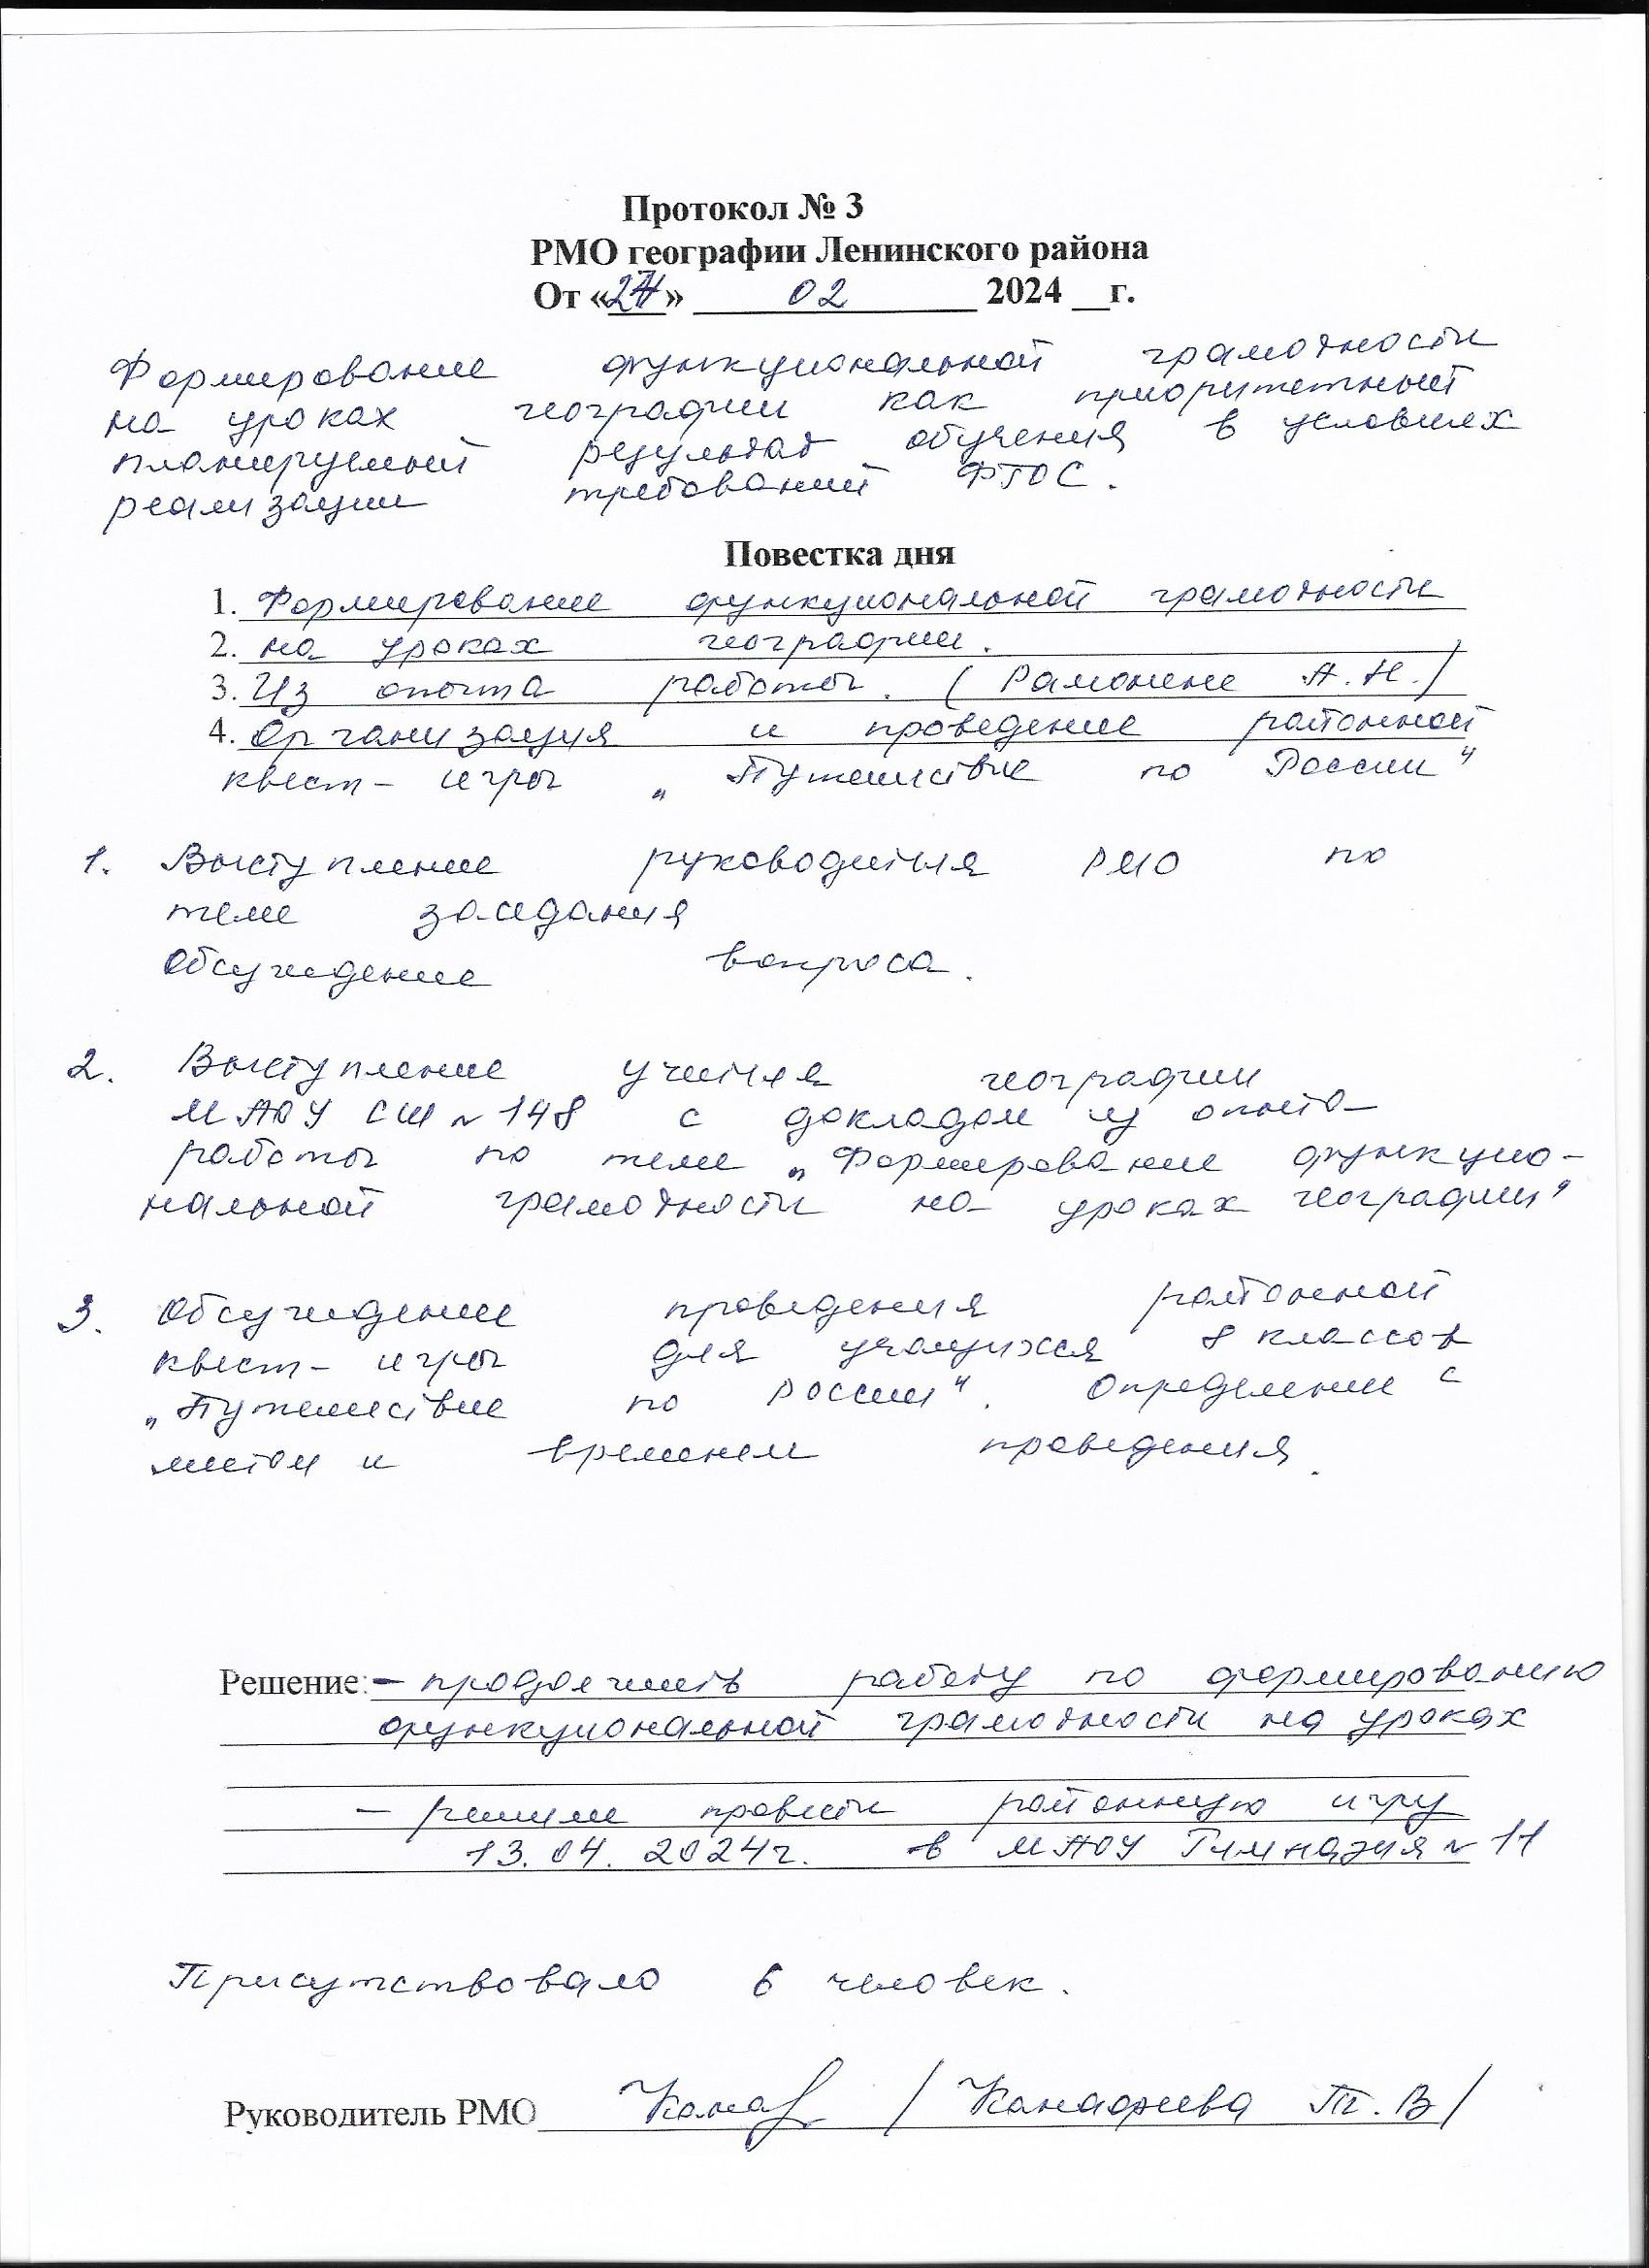 Протокол № 3
РМО географии Ленинского района
От «27» 02 2024 __г.
Формирование функциональной грамотности
на уроках географии как приоритетный
планируемый результат обучения в условиях
реализации требований ФГОС.
Повестка дня
1. Формирование функциональной грамотности
2. на уроках географии.
3. Из опыта работы. ( А.Н./
4. Организация и проведение районной
квест- игры „ Путешествие по России"
1. Выступление руководителя РМО по
теме заседания
Обсуждение вопроса.
2. Выступление учителя географии
МАОУ СШ № 148 с докладом из опыта
работы по теме „Формирование функцио-
нальной грамотности на уроках географии"
3. Обсуждение проведения районной
квест- игры для учащихся 8 классов
„Путешествие по России". Определение с
местом и временем проведения.
Решение: – продолжить работу по формированию
функциональной грамотности на уроках
– решили провести районную игру
13.04.2024г. в МАОУ Гимназия № 11
Присутствовало 6 человек.
Руководитель РМО / Канафиева Т.В/